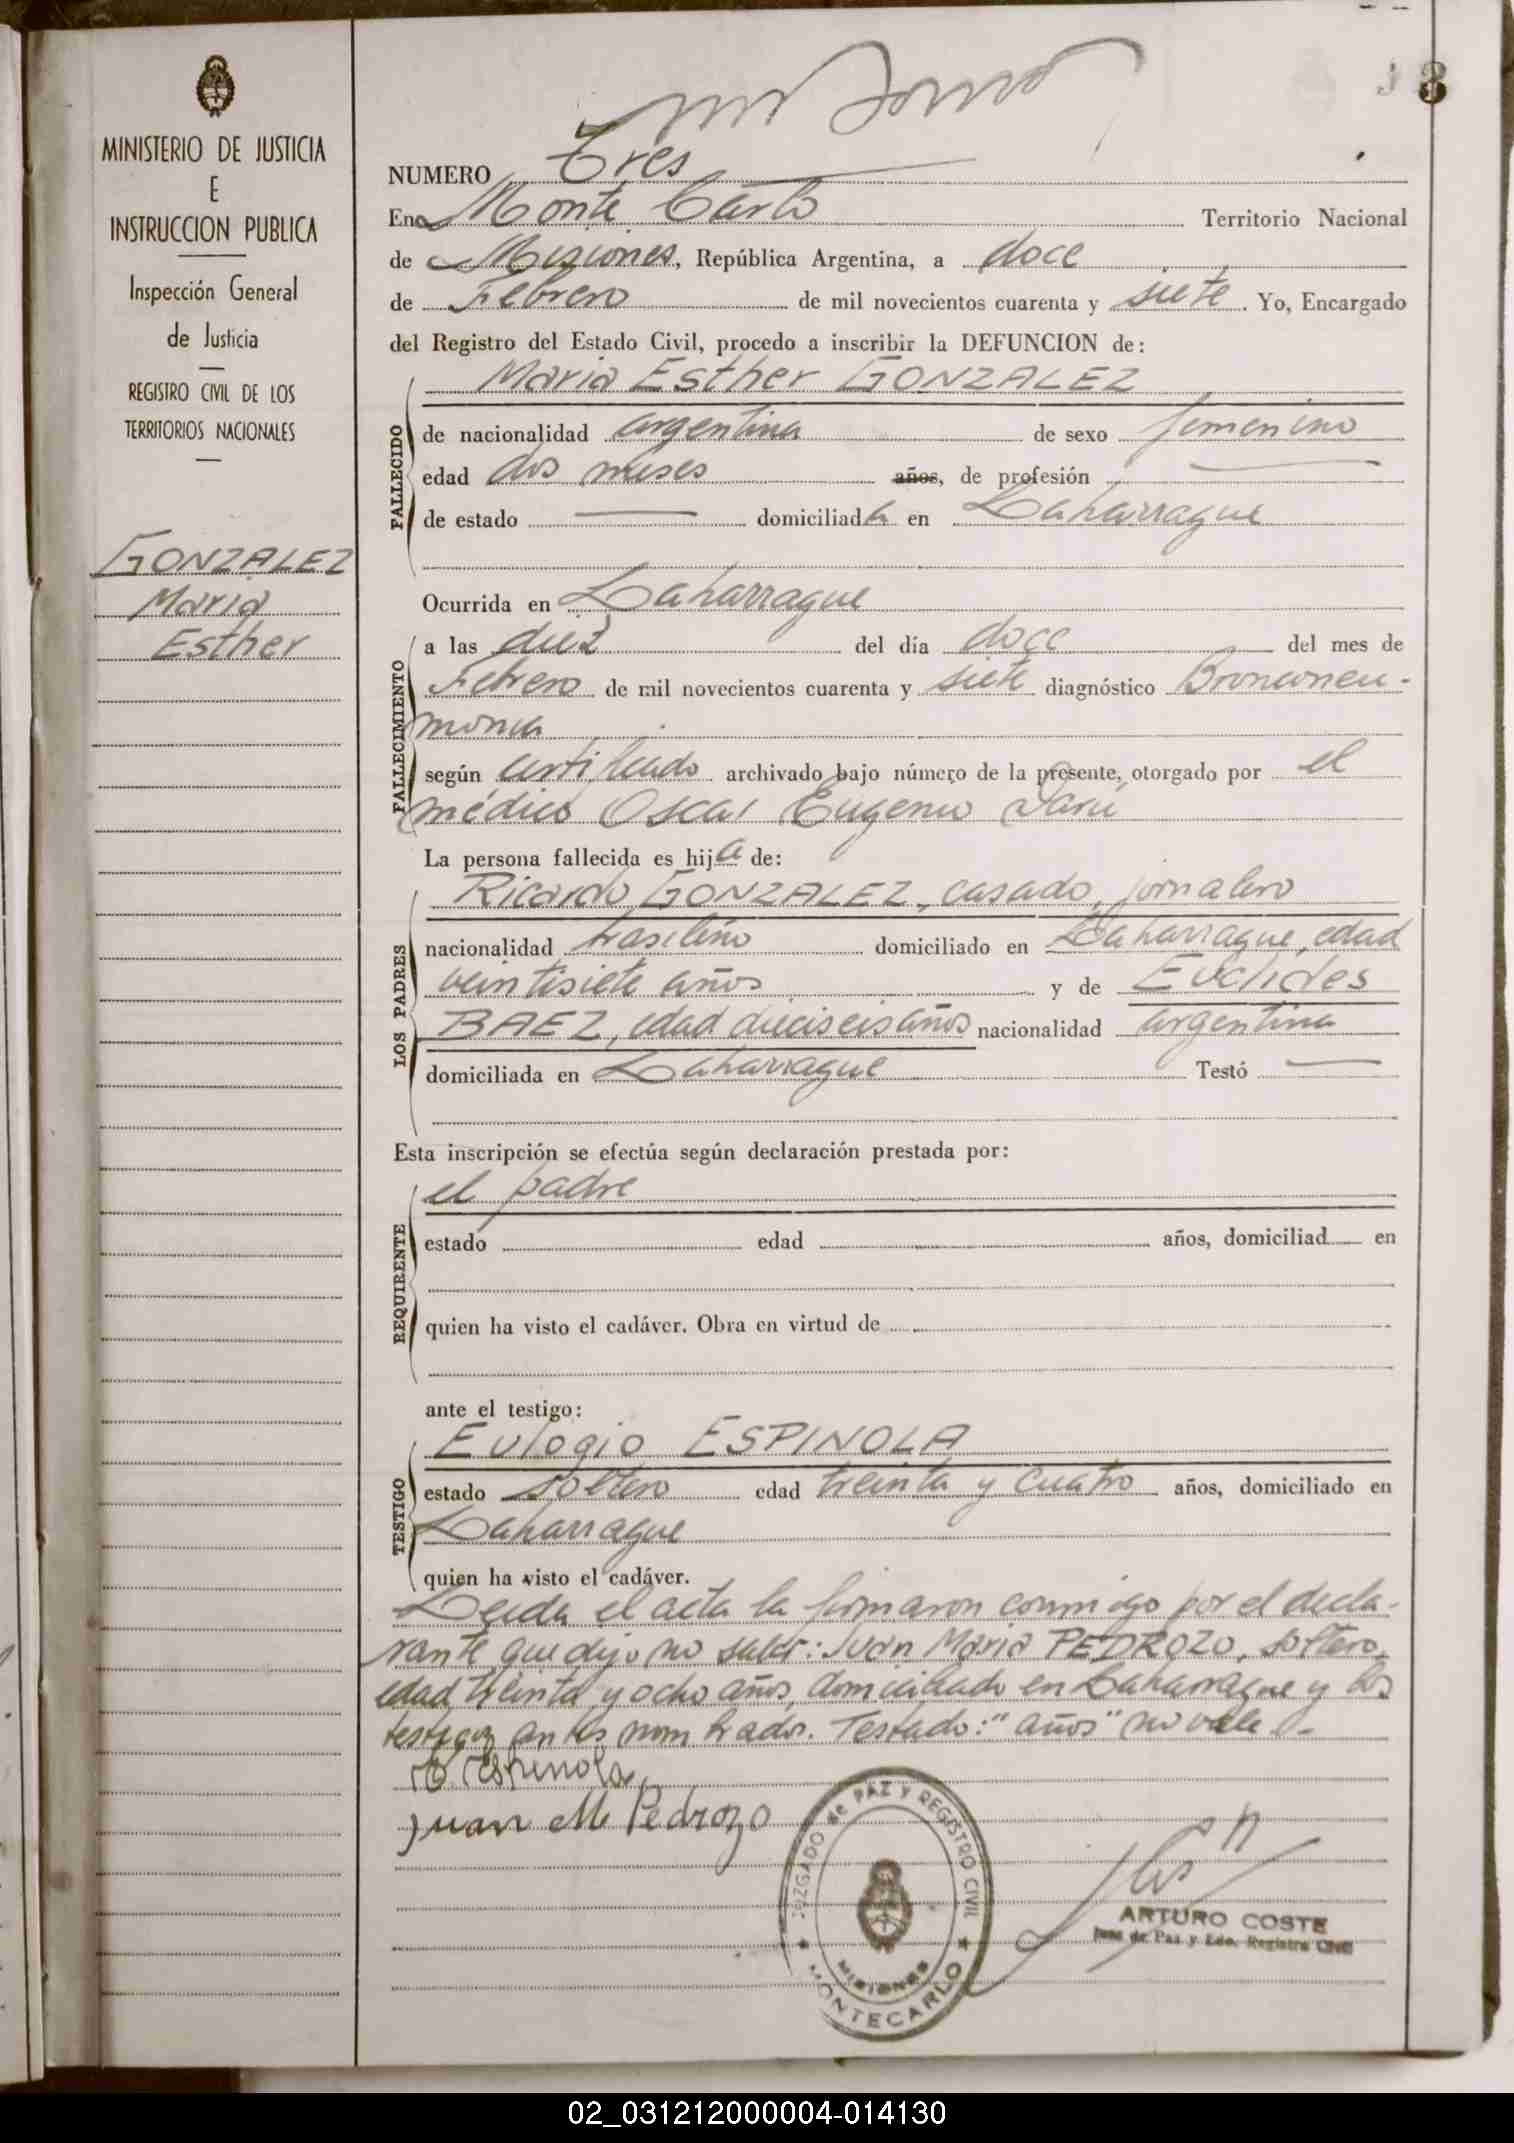 3
MINISTERIO DE JUSTICIA
E
INSTRUCCION PUBLICA
Inspección General
de Justicia
REGISTRO CIVIL DE LOS
TERRITORIOS NACIONALES
GONZALEZ
Maria
Esther
NUMERO Tres
En Monte Carlo Territorio Nacional
de Misiones, República Argentina, a doce
de Febrero de mil novecientos cuarenta y siete. Yo, Encargado
del Registro del Estado Civil, procedo a inscribir la DEFUNCION de:
Maria Esther GONZALEZ
FALLECIDO
de nacionalidad argentina de sexo femenino
edad dos meses años, de profesión
de estado domiciliada en Laharrague
Ocurrida en Laharrague
FALLECIMIENTO
a las diez del día doce del mes de
Febrero de mil novecientos cuarenta y siete diagnóstico Bronconeu-
monia
según certificado archivado bajo número de la presente, otorgado por el
médico Oscar Eugenio Darú
La persona fallecida es hija de:
LOS PADRES
Ricardo GONZALEZ, casado, jornalero
nacionalidad brasileño domiciliado en Laharrague, edad
veintisiete años y de Euclides
BAEZ, edad dieciseis años nacionalidad argentina
domiciliada en Laharrague Testó
Esta inscripción se efectúa según declaración prestada por:
REQUIRENTE
el padre
estado edad años, domiciliad en
quien ha visto el cadáver. Obra en virtud de
ante el testigo:
TESTIGO
Eulogio ESPINOLA
estado soltero edad treinta y cuatro años, domiciliado en
Laharrague
quien ha visto el cadáver.
Leida el acta la firmaron conmigo por el decla-
rante que dijo no saber: Juan Maria PEDROZO, soltero,
edad treinta y ocho años, domiciliado en Laharrague y los
testigos antes nombrados. Testado: "años" no vale.-
E. Espinola
Juan M Pedrozo
JUZGADO de PAZ Y REGISTRO CIVIL
MISIONES
MONTECARLO
ARTURO COSTE
Juez de Paz y Edo. Registro Civil
02_031212000004-014130